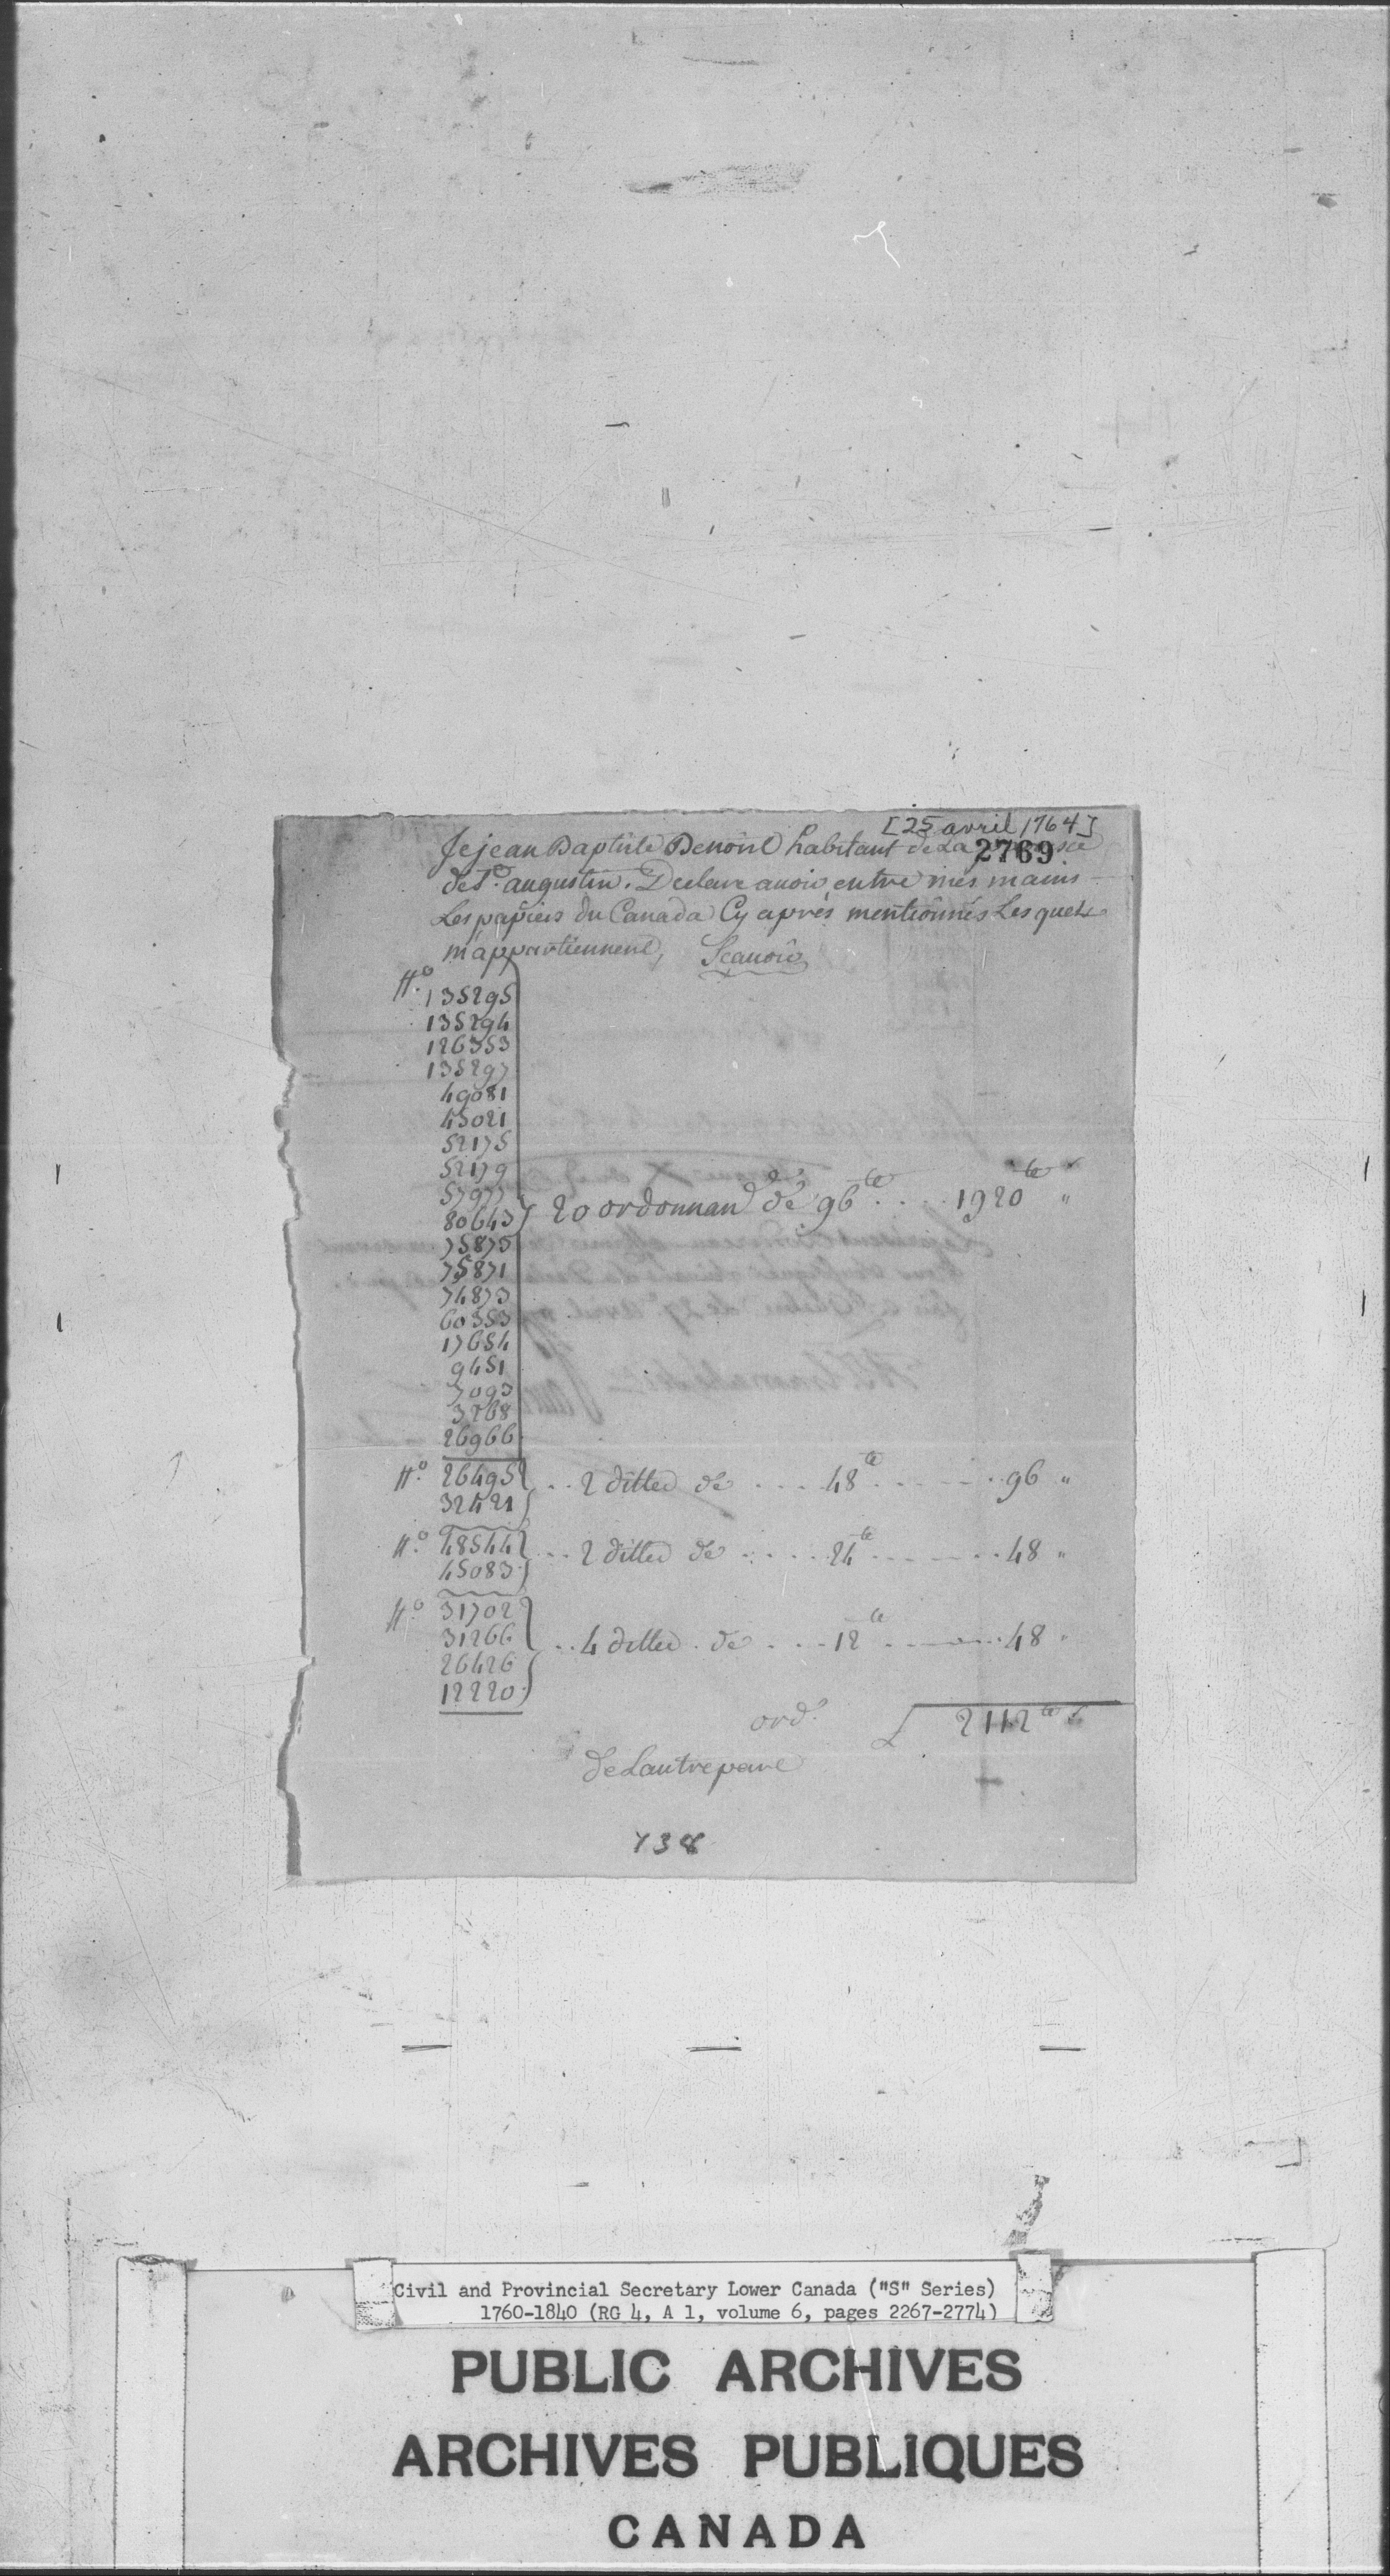 [25 avril 1764]
2769
Je jean Baptiste Benoist habitant de La
de St. augustin. Declare auoir entre mes mains
Les papiers du Canada Cy aprés mentionnés Les quels
m'appartiennent, Scauoir
No. 135295
135294
126353
135297
49081
45021
52175
52179
57977
80643 } 20 ordonnances de 96tt .... 1920tt "
75873
75871
74873
60353
17654
9451
7093
3268
26966
No. 26495 } .. 2 dittes de .... 48tt ...... 96 "
32421
No. 48544 } ... 2 dittes de ..... 24tt ...... 48 "
45083
No. 31702
31266 } .. 4 dittes . de .... 12tt ...... 48 "
26426
12220
ord. £ 2112tt
de Lautre part
738
Civil and Provincial Secretary Lower Canada ("S" Series)
1760-1840 (RG 4, A 1, volume 6, pages 2267-2774)
PUBLIC ARCHIVES
ARCHIVES PUBLIQUES
CANADA